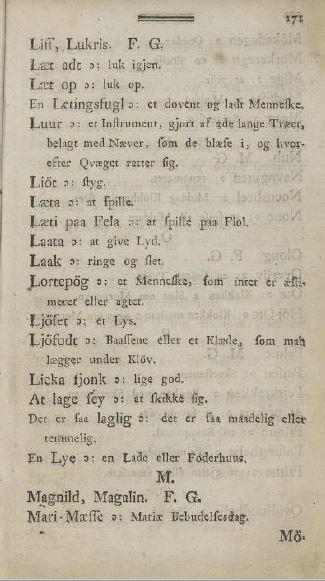 171
Liff, Lukris. F. G.
Læt adt ɔ: luk igjen.
Læt op ɔ: luk op.
En Letingsfugl ɔ: et dovent og ladt Menneske.
Luur ɔ: et Instrument, gjort af 2de lange Træer,
belagt med Næver, som de blæse i, og hvor-
efter Qvæget retter sig.
Liöt ɔ: styg.
Læta ɔ: at spille.
Læti paa Fela ɔ: at spille paa Fiol.
Laata ɔ: at give Lyd.
Laak ɔ: ringe og slet.
Lortepög ɔ: et Menneske, som intet er æsti-
meret eller agtet.
Ljöset ɔ: et Lys.
Ljöfodt ɔ: Baassene eller et Klæde, som man
lægger under Klöv.
Licka sjonk ɔ: lige god.
At lage sey ɔ: at skikke sig.
Det er saa laglig ɔ: det er saa maadelig eller
temmelig.
En Lye ɔ: en Lade eller Foderhuus.
M.
Magnild, Magalin. F. G.
Mari-Mæsse ɔ: Mariæ Bebudelsesdag.
Mö-